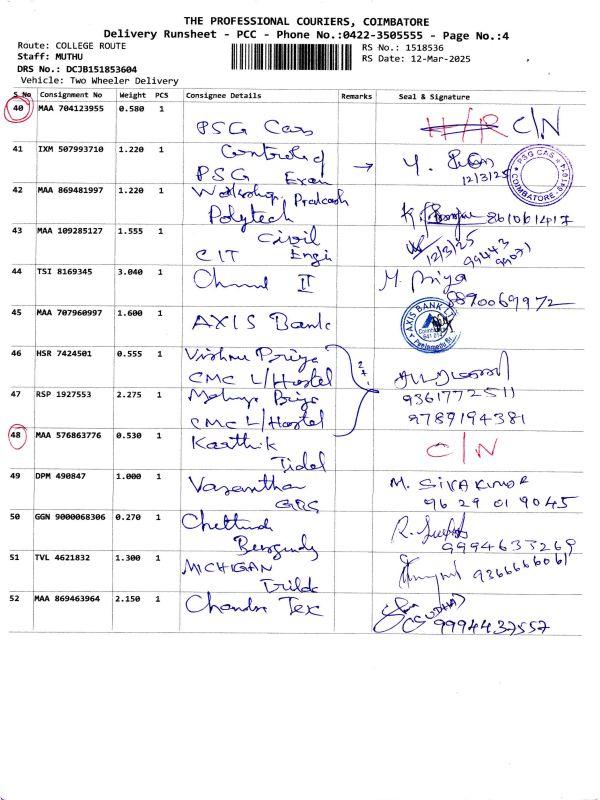 THE PROFESSIONAL COURIERS, COIMBATORE
Delivery Runsheet - PCC - Phone No.:0422-3505555 - Page No.:4
Route: COLLEGE ROUTE
RS No.: 1518536
Staff: MUTHU
RS Date: 12-Mar-2025
DRS No.: DCJB151853604
Vehicle: Two Wheeler Delivery
S No Consignment No Weight PCS Consignee Details Remarks Seal & Signature
40 MAA 704123955 0.580 1 PSG Cas H/R C/N
41 IXM 507993710 1.220 1 PSG Exam
12/3/25
PSG CAS
COIMBATORE
42 MAA 869481997 1.220 1 Workshop, Prakash
Polytech
43 MAA 109285127 1.555 1 Civil
CIT Engi
12/3/25
99443
44 TSI 8169345 3.040 1 II M. Priya
8890069972
45 MAA 707960997 1.600 1 AXIS Bank
AXIS BANK
46 HSR 7424501 0.555 1 Vishnu Priya
CMC L/Hostel
47 RSP 1927553 2.275 1 Priya
9361772511
CMC L/Hostel
9789194381
48 MAA 576863776 0.530 1 Karthik C/N
Tidel
49 DPM 490847 1.000 1 Vasantha M. SIVAKUMAR
GRS
96 29 01 9045
50 GGN 9000068306 0.270 1 Chettinad R.
9994633269
51 TVL 4621832 1.300 1 MICHIGAN
9366666061
52 MAA 869463964 2.150 1 Chandra Tex
(SUDHA)
9994437557